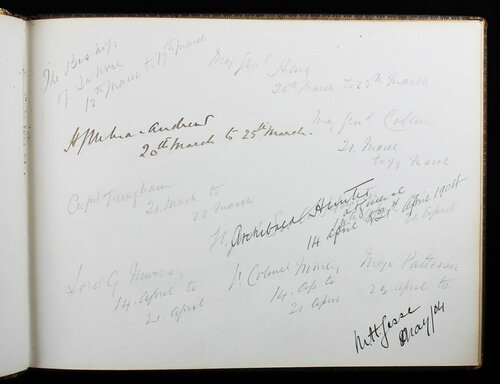 The Bishop
of Lahore
12th March to 17th March
Maj Genl Haig
20th March to 25th March.
Andrew
20th March to 25th March.
Maj Genl
21 March
to 22 March
Capt
21 March to
22 March
Archibald Hunter
General
14 April to 21st April 1904
20 April
Lord G. Murray
14 April to
20 April
Lt Colonel
14 Ap to
21 April
Major Patterson
23 April to
May/04